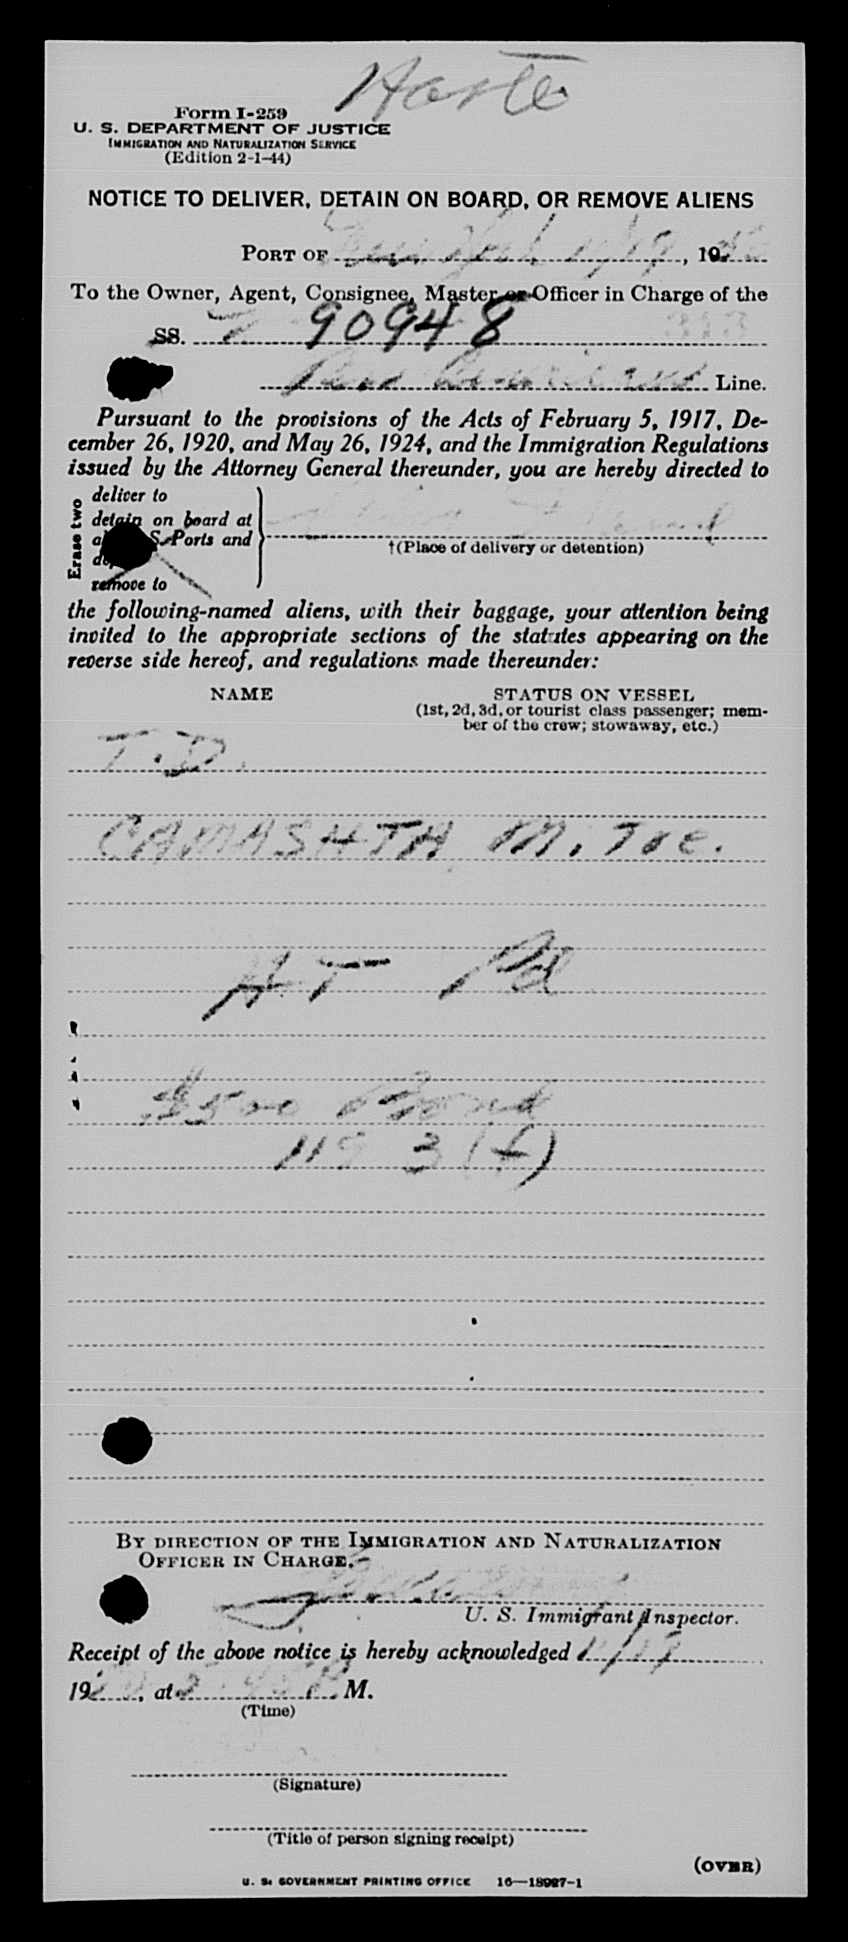 Form I-259
U. S. DEPARTMENT OF JUSTICE
IMMIGRATION AND NATURALIZATION SERVICE
(Edition 2-1-44)
NOTICE TO DELIVER, DETAIN ON BOARD, OR REMOVE ALIENS
PORT OF New York 11/19, 19
To the Owner, Agent, Consignee, Master or Officer in Charge of the
SS. 90948
Pan American Line.
Pursuant to the provisions of the Acts of February 5, 1917, De-
cember 26, 1920, and May 26, 1924, and the Immigration Regulations
issued by the Attorney General thereunder, you are hereby directed to
Erase two
deliver to
detain on board at
S. Ports and
remove to
†(Place of delivery or detention)
the following-named aliens, with their baggage, your attention being
invited to the appropriate sections of the statutes appearing on the
reverse side hereof, and regulations made thereunder:
NAME STATUS ON VESSEL
(1st, 2d, 3d, or tourist class passenger; mem-
ber of the crew; stowaway, etc.)
T.D.
CAMASHTA M. Toe.
HT Pd
$500 Bond
3(f)
BY DIRECTION OF THE IMMIGRATION AND NATURALIZATION
OFFICER IN CHARGE.
U. S. Immigrant Inspector.
Receipt of the above notice is hereby acknowledged 11/19
19, at M.
(Time)
(Signature)
(Title of person signing receipt)
(OVER)
U. S. GOVERNMENT PRINTING OFFICE 16—18987-1